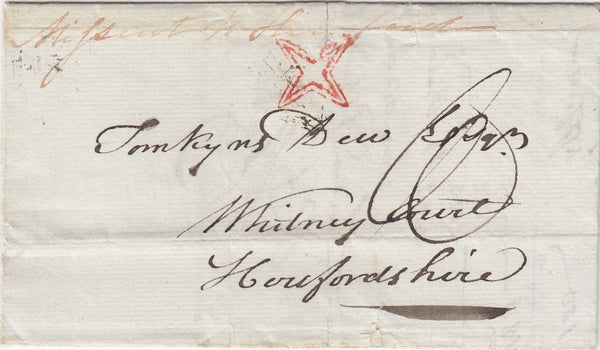 Missent to Hereford
Tomkyns Dew Esqr
Whitney Court
Herefordshire